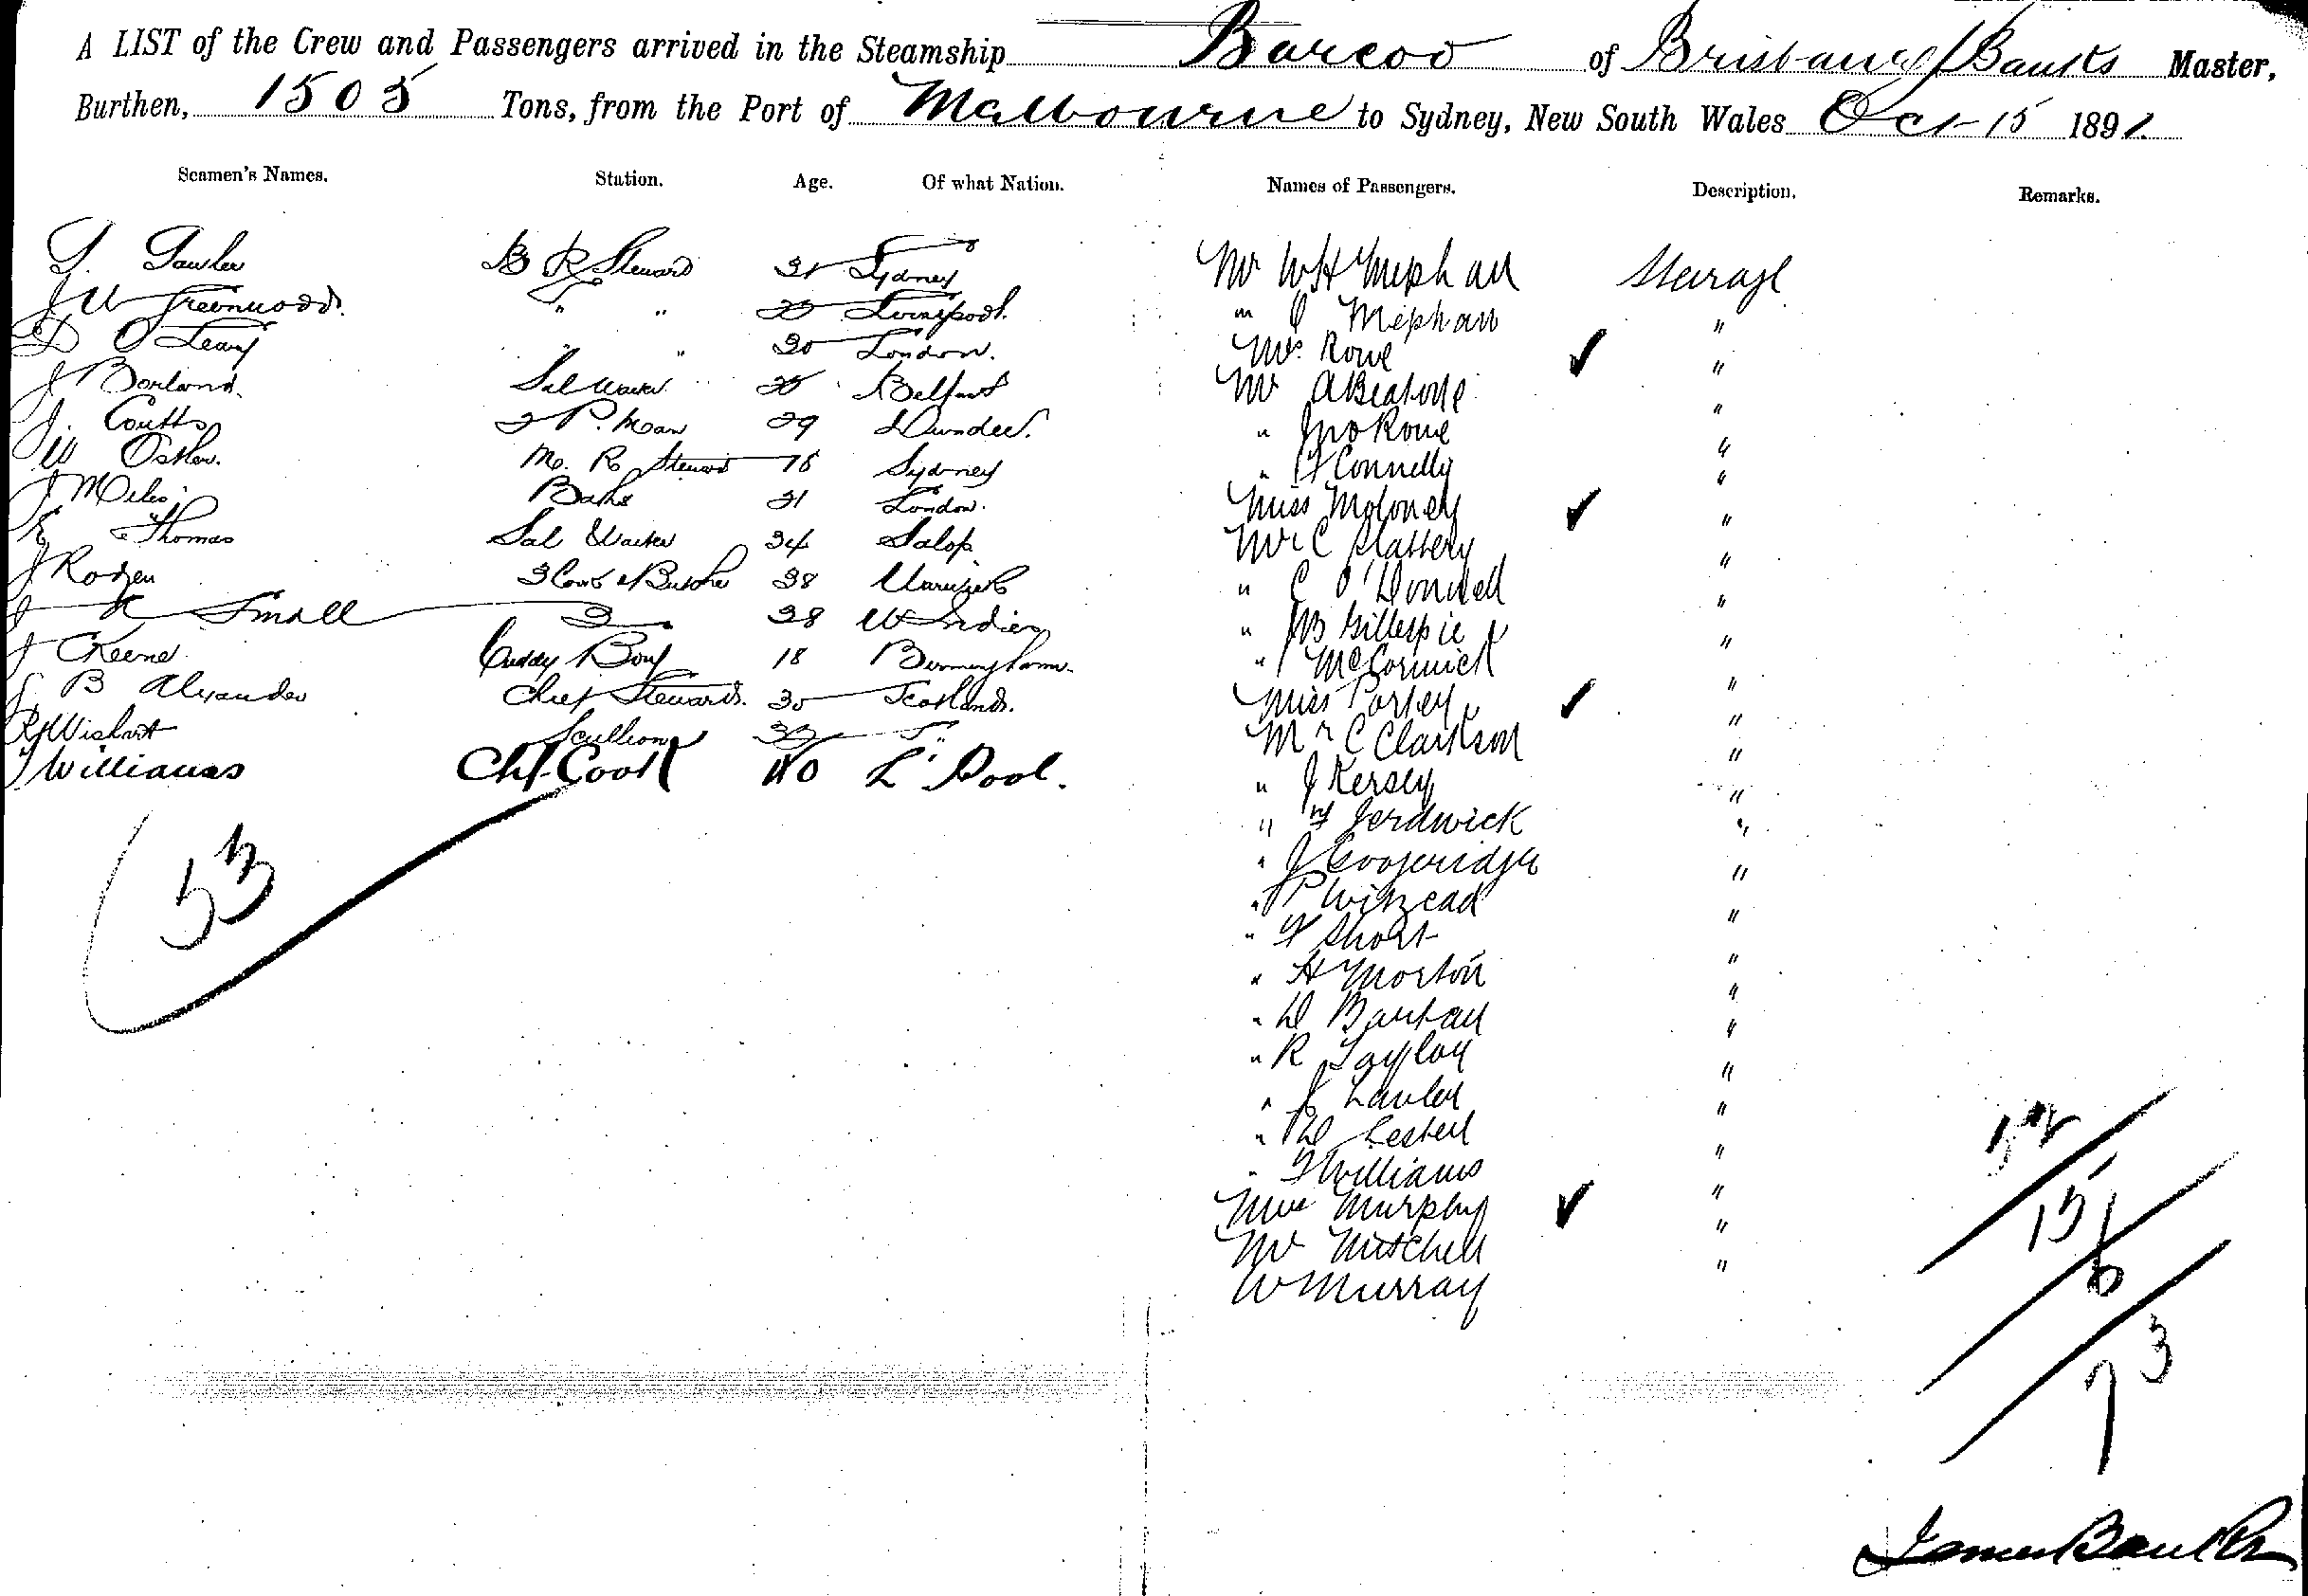 A LIST of the Crew and Passengers arrived in the Steamship Barcoo of Brisbane J Banks Master,
Burthen, 1505 Tons, from the Port of Melbourne to Sydney, New South Wales Oct 15 1891
Seamen's Names. Station. Age. Of what Nation. Names of Passengers. Description. Remarks.
B R Steward 31 Sydney
J W Greenwood. " " Liverpool.
D O'Leary " " 30 London.
J Borland. Sal Waiter 25 Belfast
J. Coutts 2 P. man 29 Dundee.
W Ostler. Mo. R Steward 18 Sydney
J Miles Baker 31 London.
E Thomas Sal Waiter 34 Salop
J Rozen 3 Cook & Butcher 38
J R Small 2 38 W Indies
J Keene Cuddy Boy 18 Birmingham.
J B Alexander Chief Steward. 30 Scotland.
R J Wishart Scullion
J Williams Chf Cook 40 L'Pool.
53
Mr W H Mephan Steerage
" J Mephan "
Mrs Rowe ✓ "
Mr A Beatvie "
" Jno Rowe "
" Connelly "
Miss Moloney ✓ "
Mr C Slattery "
" C O'Donnell "
" J B Gillespie "
" J McCormick "
Miss Porley ✓ "
Mr C Clarkson "
" J Kersey "
" Jerdwick "
" J "
" P Winzead "
" F Short "
" H Morton "
" D "
" R Taylor "
" J Lawler "
" W Lester "
" F Williams "
Mrs Murphy ✓ "
Mr Mitchell "
W Murray
52
15
6
73
James Banks